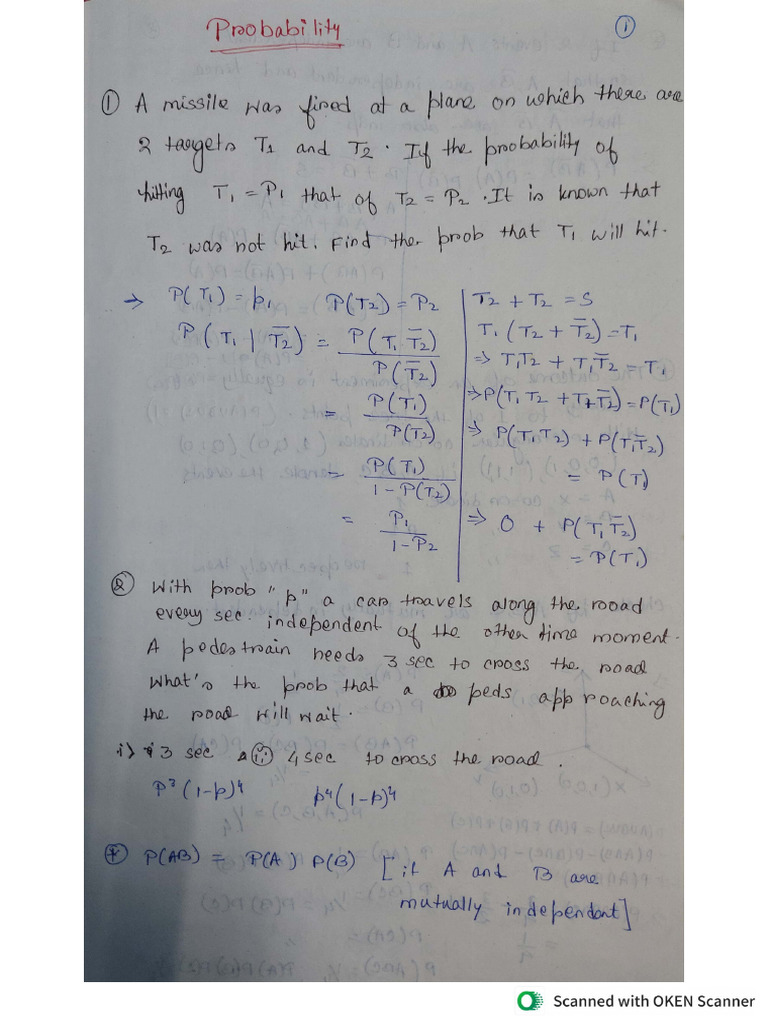 Probability
①
① A missile was fired at a plane on which there are
2 targets T₁ and T₂. Iif the probability of
hitting T₁ = P₁ that of T₂ = P₂. It is known that
T₂ was not hit. Find the prob that T₁ will hit.
→ P(T₁) = p₁ P(T₂) = P₂
P(T₁ | T̅₂) = P(T₁ T̅₂) / P(T̅₂)
= P(T₁) / P(T̅₂)
= P(T₁) / 1 - P(T₂)
= P₁ / 1 - P₂
T₂ + T̅₂ = S
T₁ (T₂ + T̅₂) = T₁
⇒ T₁T₂ + T₁T̅₂ = T₁
⇒ P(T₁ T₂ + T₁ T̅₂) = P(T₁)
⇒ P(T₁T₂) + P(T₁T̅₂)
= P(T₁)
⇒ 0 + P(T₁ T̅₂)
= P(T₁)
② With prob "p" a car travels along the road
every sec. independent of the other time moment.
A pedestrain needs 3 sec to cross the road
What's the prob that a peds approaching
the road will wait.
i) 3 sec ii) 4 sec to cross the road.
P³ (1-p)⁴ p⁴ (1-p)⁴
* P(AB) = P(A) P(B) [if A and B are
mutually independant]
Scanned with OKEN Scanner